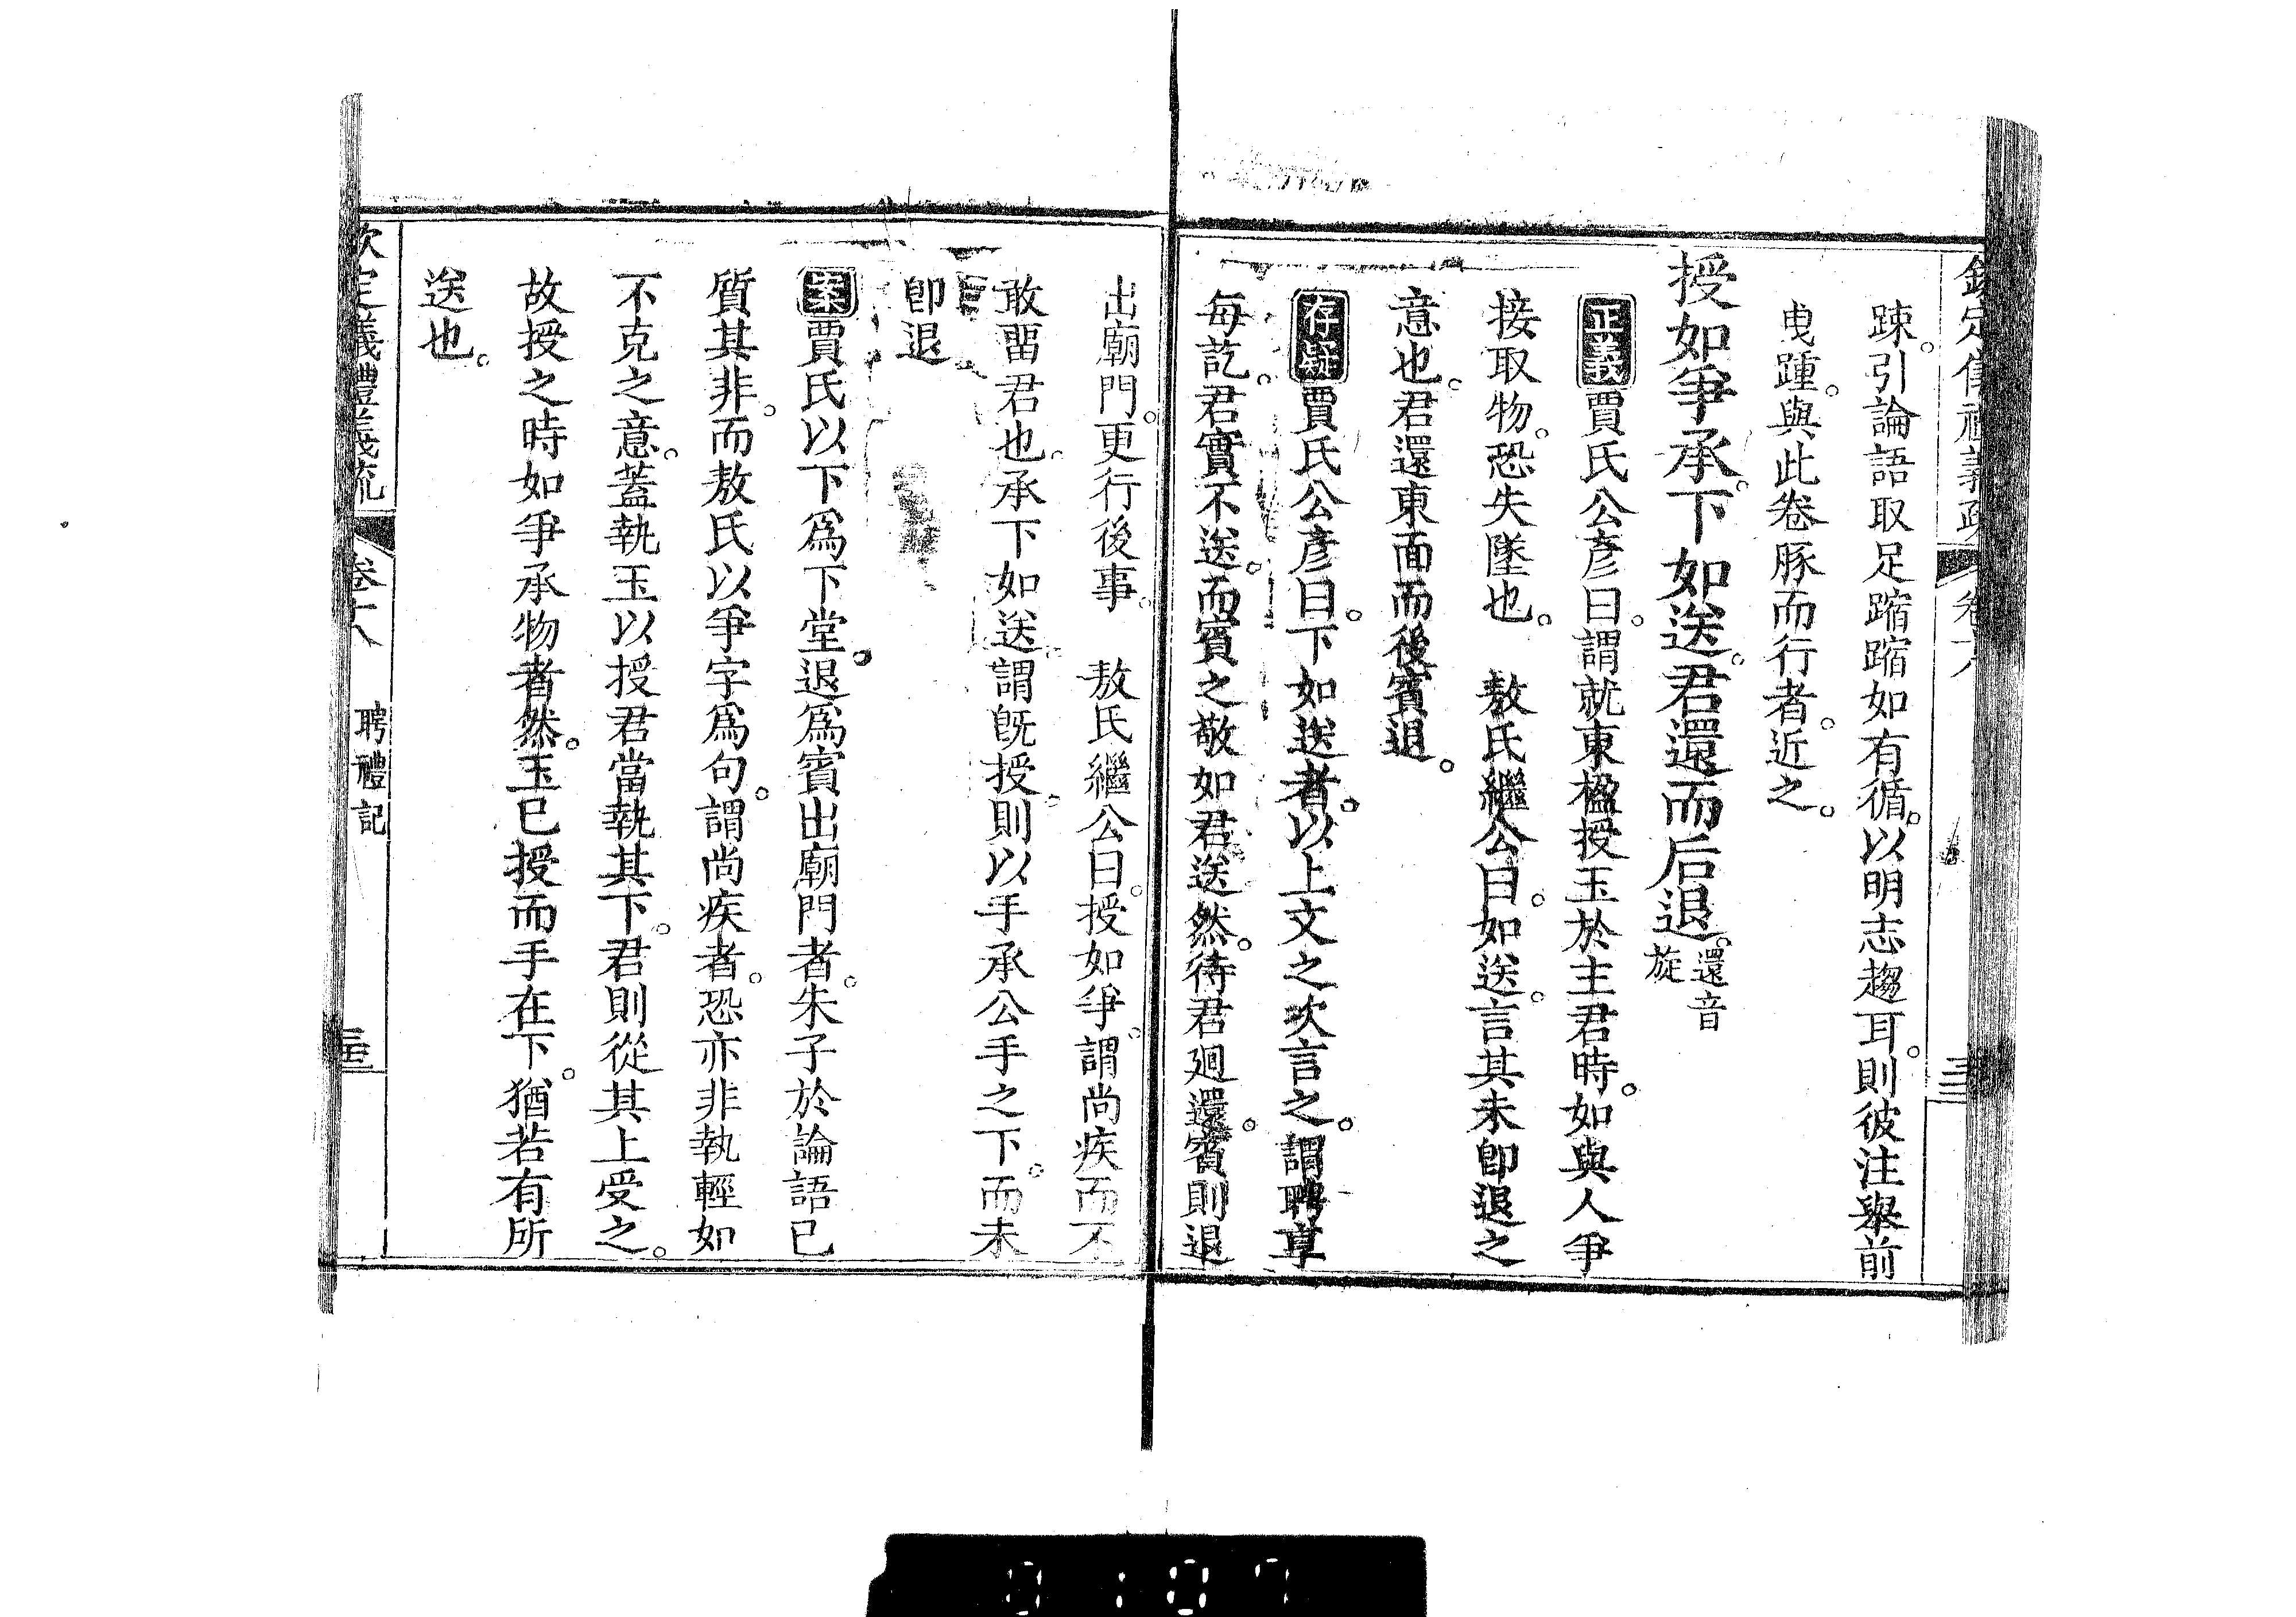 踈。引論語取足蹜蹜如有循。以明志趨耳。則彼注舉前
曳踵。與此卷豚而行者。近之。
授如爭承。下如送。君還而后退。還音
旋
正義賈氏公彥曰。謂就東楹授玉於主君時。如與人爭
接取物。恐失墜也。 敖氏繼公曰。如送。言其未卽退之
意也。君還東面而後賓退。
存疑賈氏公彥曰。下如送者。以上文之次言之。謂聘享
每訖。君實不送。而賓之敬如君送然。待君廻還。賓則退
出廟門。更行後事。 敖氏繼公曰。授如爭。謂尚疾而不
敢留君也。承下如送。謂旣授。則以手承公手之下。而未
卽退
案賈氏以下爲下堂。退爲賓出廟門者。朱子於論語已
質其非。而敖氏以爭字爲句。謂尚疾者。恐亦非執輕如
不克之意。蓋執玉以授君當執其下。君則從其上受之。
故授之時如爭承物者然。玉已授而手在下。猶若有所
送也。
欽定義禮義疏 卷十八 聘禮記